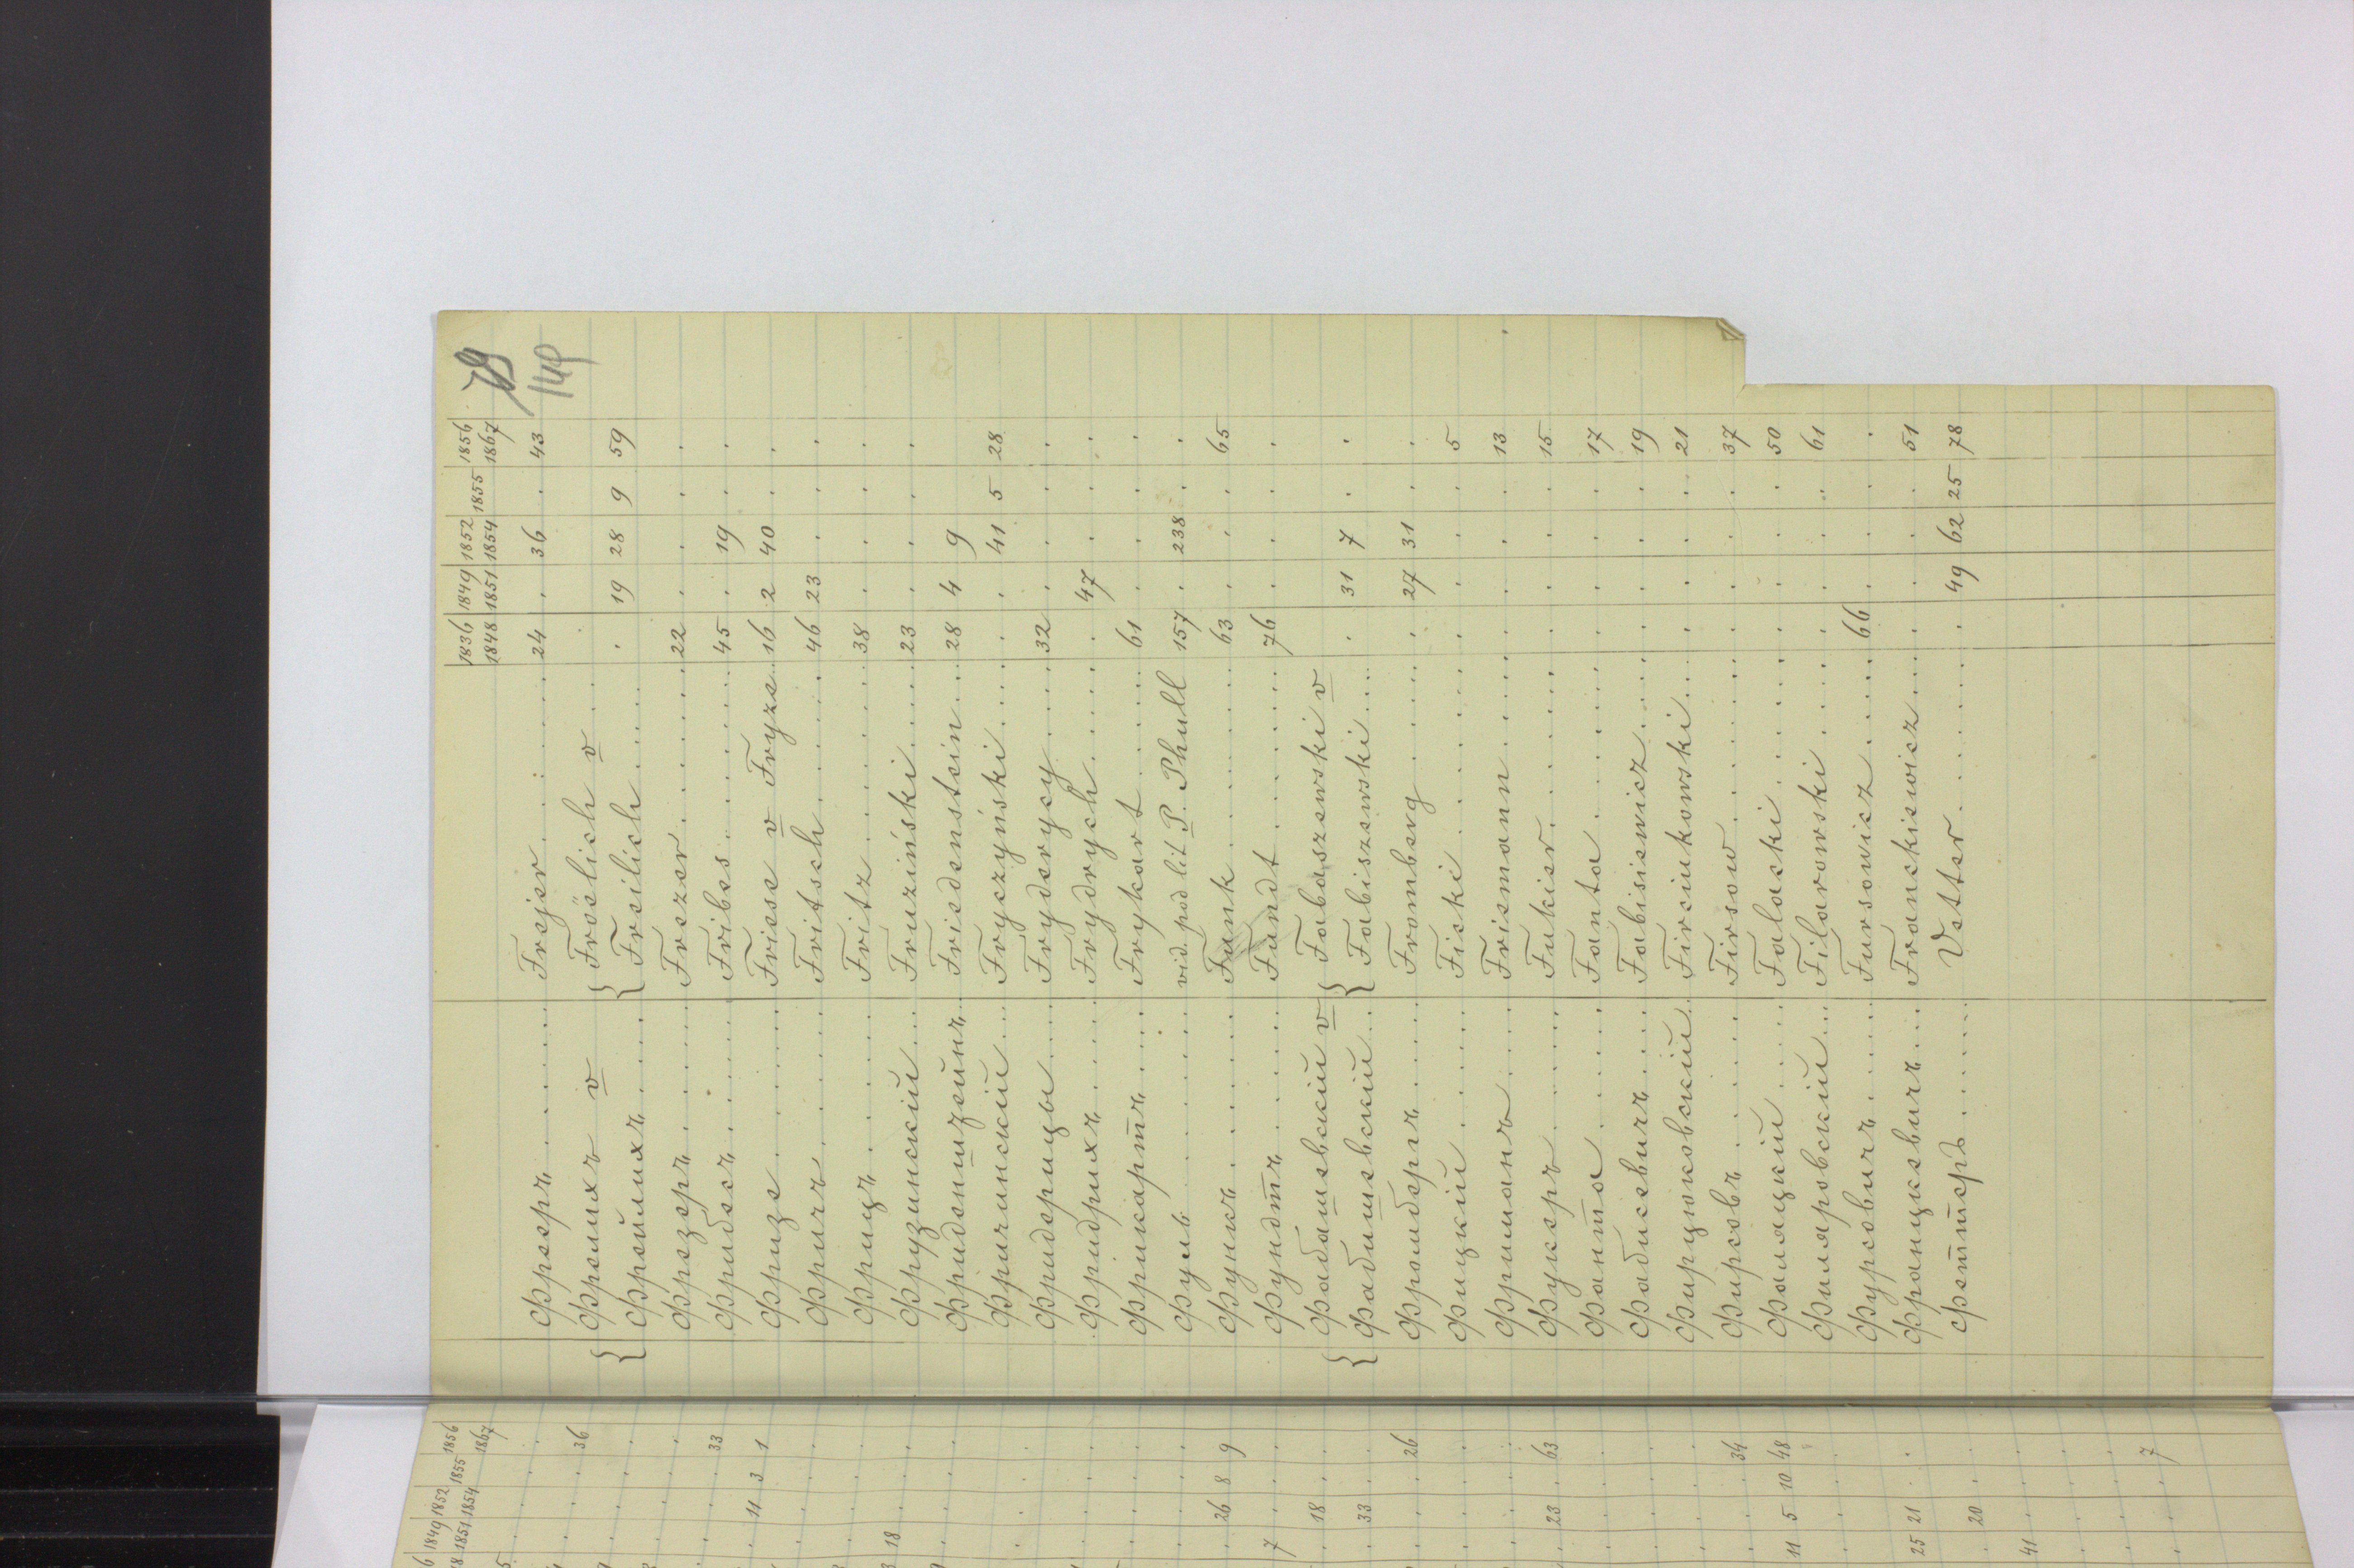 79
149
1836 1849 1852 1855 1856
1848 1851 1854 1867
Фрееръ Frejer 24 . 36 . 43
Фрелихъ v Fröelich v
Фрейлихъ Freilich . 19 28 9 59
Фрезеръ Frezer 22 . . . .
Фрибесъ Fribes 45 . 19 . .
Фризе Friese v Fryze 16 2 40 . .
Фричъ Fritsch 46 23 . . .
Фрицъ Fritz 38 . . . .
Фрузинскій Fruziński 23 . . . .
Фриденштейнъ Friedenstein 28 4 9
Фричинскій Fryczyński . . 41 5 28
Фридерицы Fryderycy 32 . . . .
Фридрихъ Frydrych . 47 . . .
Фрикартъ Frykart 61 . . . .
Фуль vid. pod lit P. Phull 157 . 238 . .
Функъ Funk 63 . . . 65
Фундтъ Fundt 76 . . . .
Фабашевскій v Fabaszewski v
Фабишевскій Fabiszewski . 31 7 . .
Фромбергъ Fromberg . 27 31 . .
Фицкій Ficki . . . . 5
Фриманъ Friemann . . . . 13
Фукеръ Fukier . . . . 15
Фанта Fanta . . . . 17
Фабисевичъ Fabisiewicz . . . . 19
Фирцюковскій Firciukowski . . . . 21
Фирсовъ Firsow . . . . 37
Фаляцкій Falacki . . . . 50
Филяровскій Filarowski . . . . 61
Фурсовичъ Fursowicz 66 . . . .
Францкевичъ Franckiewicz . . . . 51
Феттеръ Vetter . 49 62 25 78
1849 1852 1855 1856
1851 1854 1867
36
33
11 3 1
18
26 8 9
7
18
33
26
23 . 63
34
11 5 10 48
25 21 . .
20
41
7